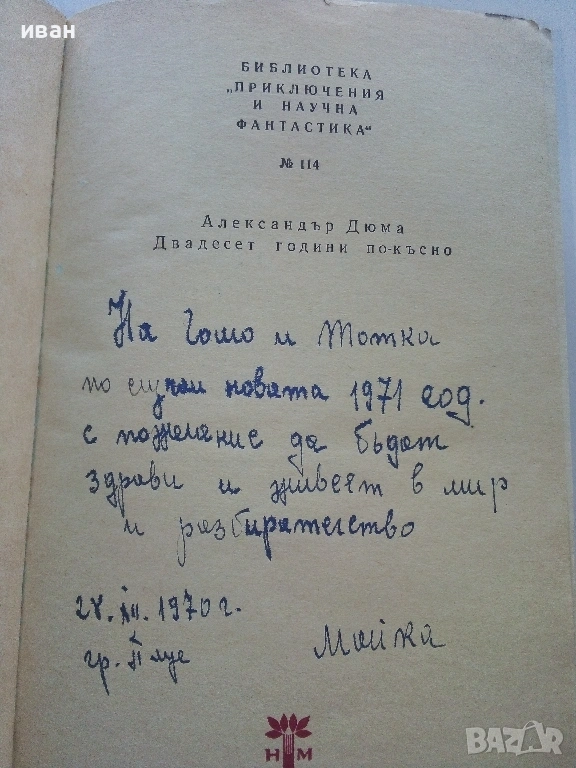 иван
БИБЛИОТЕКА
„ПРИКЛЮЧЕНИЯ
И НАУЧНА
ФАНТАСТИКА“
№ 114
Александър Дюма
Двадесет години по-късно
На Гошо и Тотка
по случаи новата 1971 год.
с пожелание да бъдат
здрави и живеят в мир
и разбирателство
XII. 1970 г.
гр.
Майка
Н М
BAZAR